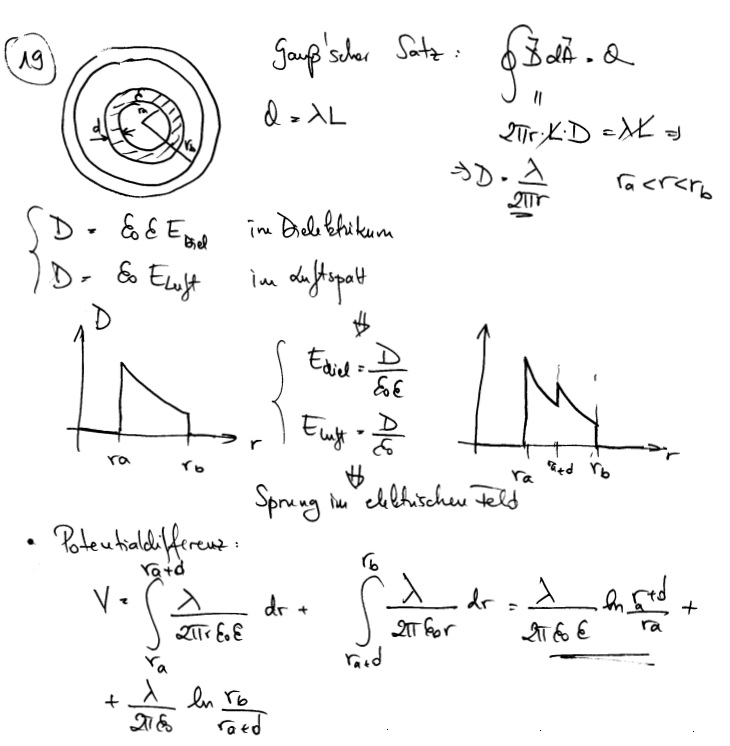 19
Gauß'scher Satz : ∮ D⃗ dA⃗ = Q
Q = λL
ε
ra
d
rb
"
2πr·L·D = λL ⇒
⇒ D = λ/2πr ra < r < rb
D = ε0 ε EDiel im Dielektrikum
D = ε0 ELuft im Luftspalt
⇓
D
ra rb r
Ediel = D/ε0ε
ELuft = D/ε0
ra ra+d rb r
⇓
Sprung im elektrischen Feld
• Potentialdifferenz:
V = ∫_{ra}^{ra+d} λ/2πrε0ε dr + ∫_{ra+d}^{rb} λ/2πε0r dr = λ/2πε0ε ln ra+d/ra +
+ λ/2πε0 ln rb/ra+d